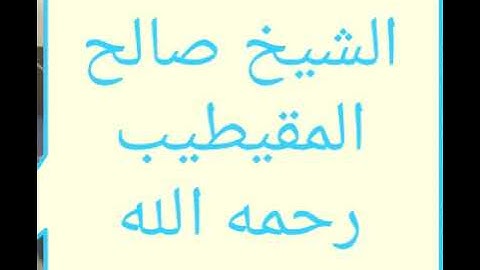 الشيخ صالح
المقيطيب
رحمه الله